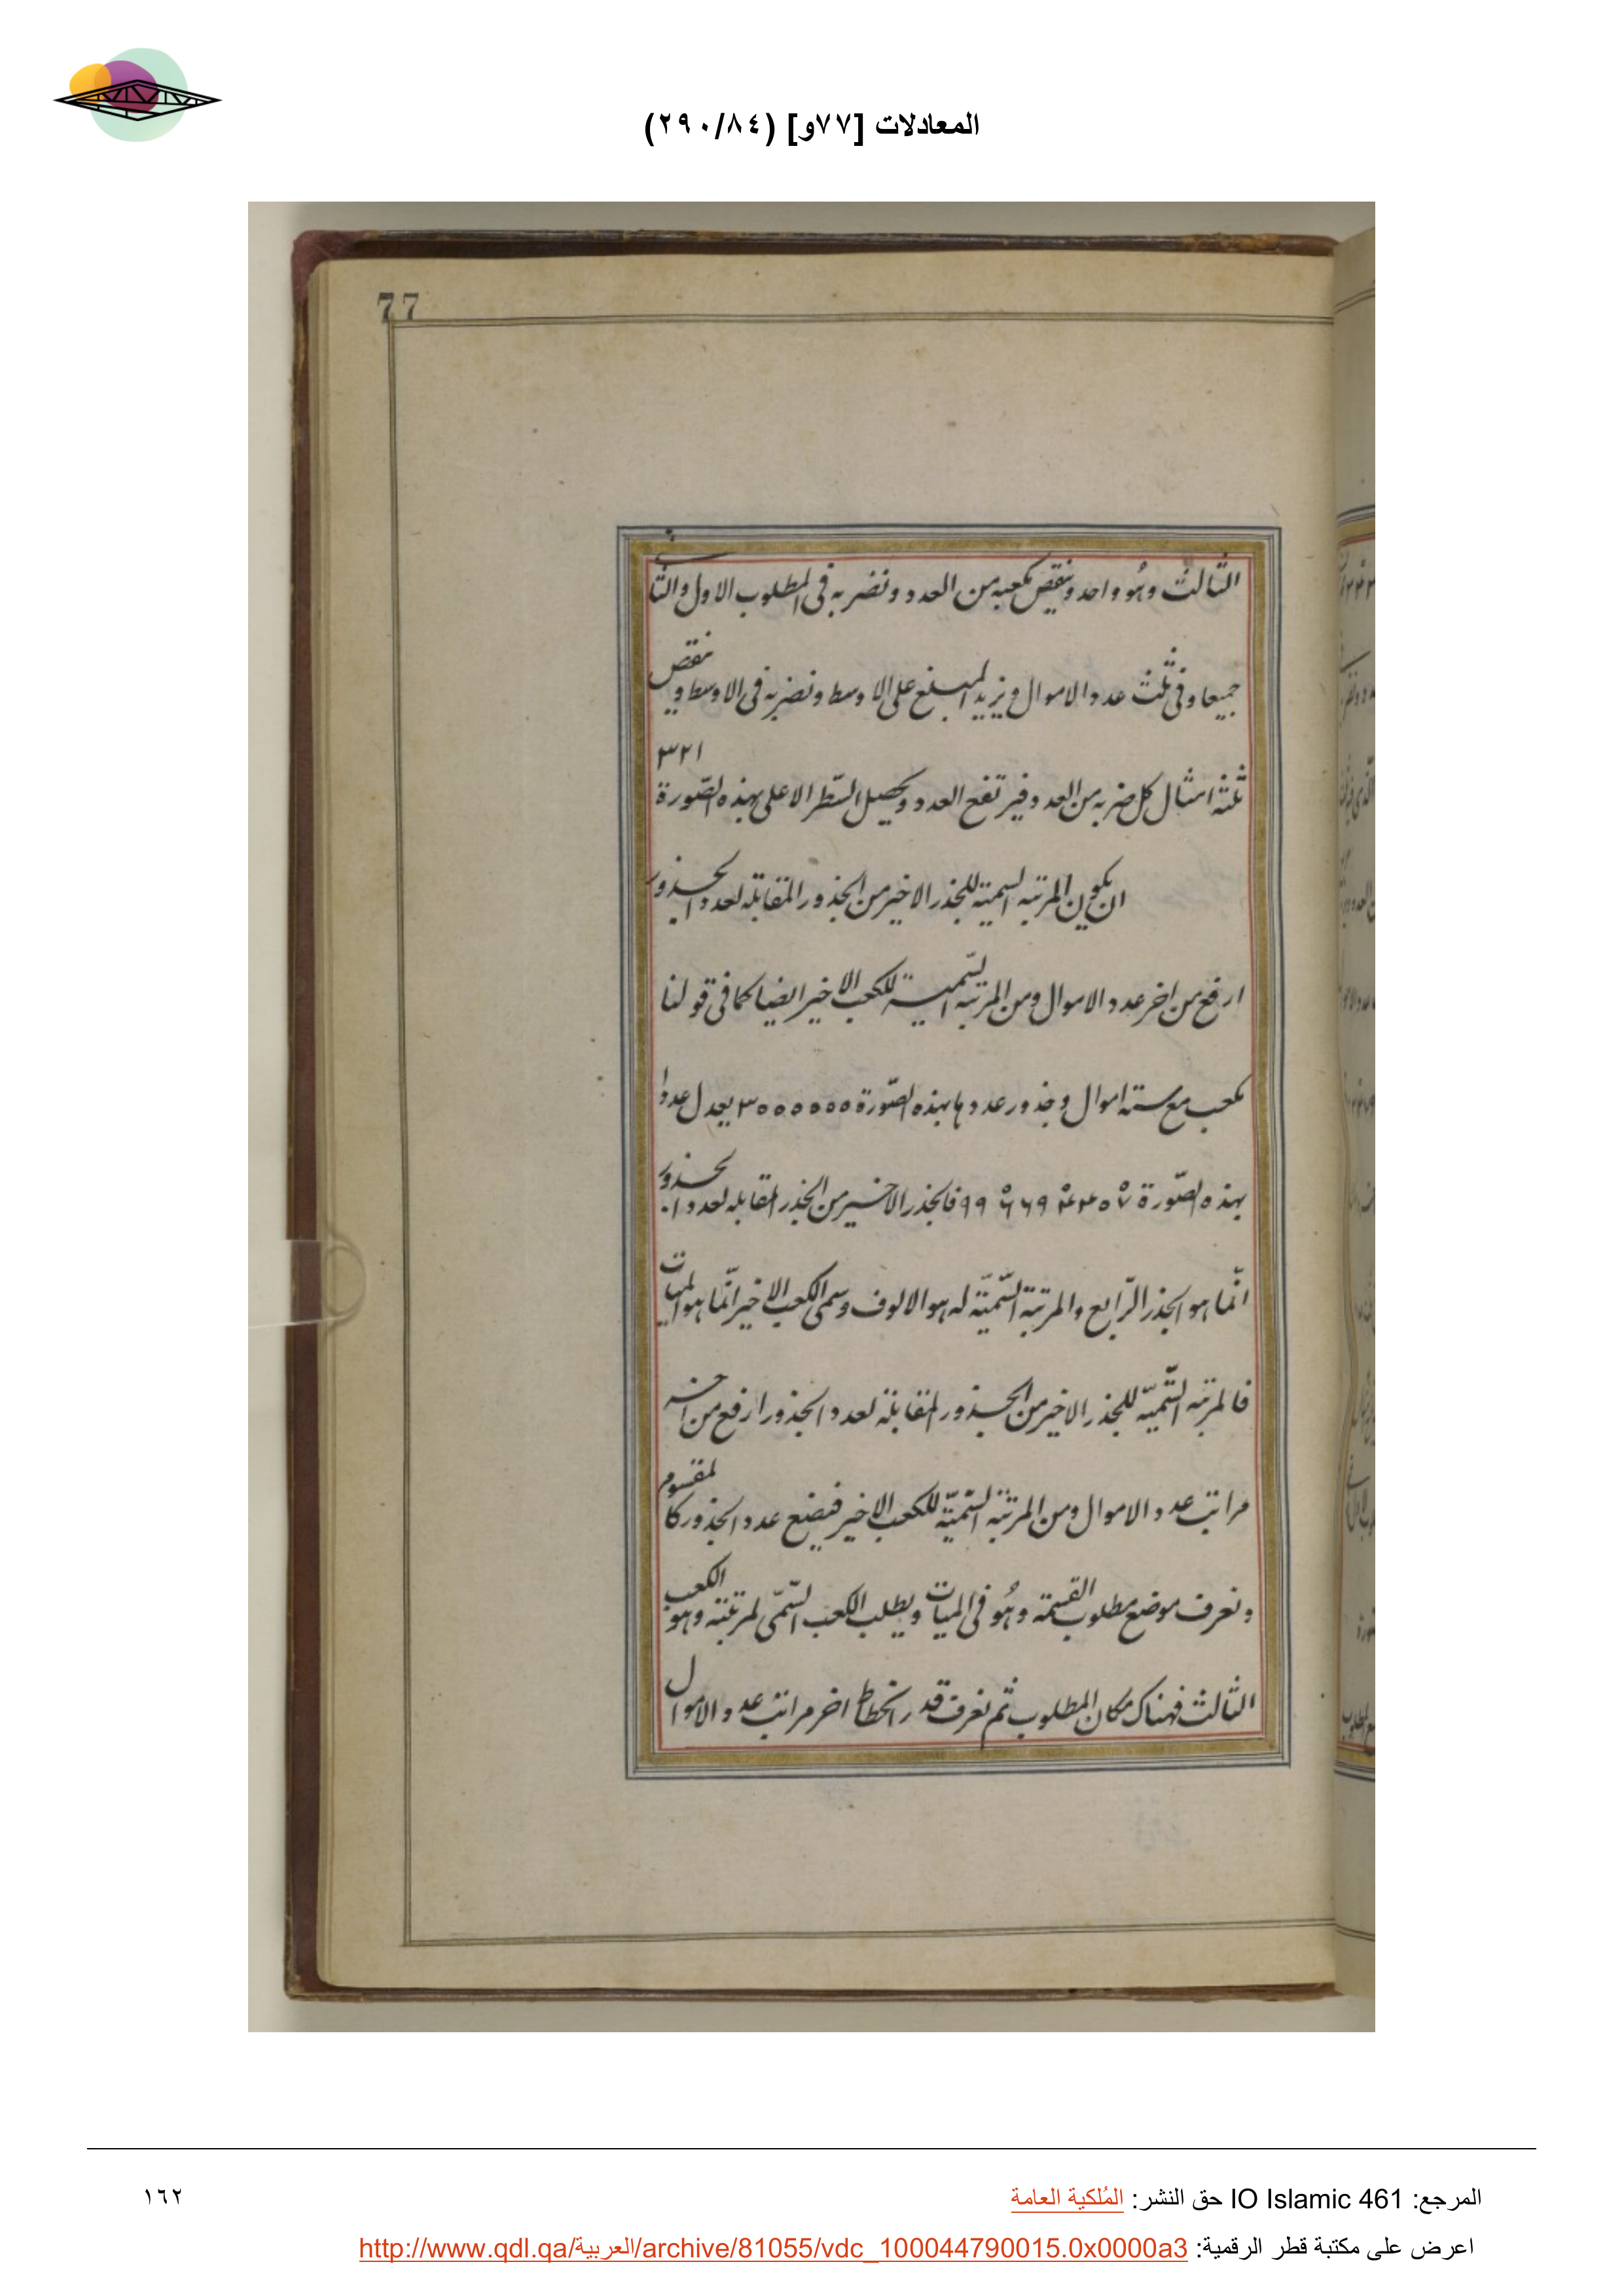 المعادلات [٧٧و] (٢٩٠/٨٤)
77
الثالث وهو واحد وننقص مكعبه من العدد ونضربه في المطلوب الاول والثاني
جميعا وفي ثلث عدد الاموال ونزيد المبلغ على الاوسط ونضربه في الاوسط وننقص
ثلثة امثال كل ضربه من العدد فيرتفع العدد ويحصل السّطر الاعلى بهذه الصّورة ٣٢١
ان يكون المرتبه السمية للجذر الاخير من الجذور المقابلة لعدد الجذور
ارفع من اخر عدد الاموال ومن المرتبه السّمية للكعب الاخير ايضا كما في قولنا
مكعب مع ستة اموال وجذور عددها بهذه الصّورة ٣٠٠٠٠٠٠ يعدل عددا
بهذه الصّورة فالجذر الاخير من الجذر المقابله لعدد الجذور
انّما هو الجذر الرّابع والمرتبة السّميّة له هو الالوف وسمى الكعب الاخير انّما هو الميات
فالمرتبه السّميّه للجذر الاخير من الجذور المقابلة لعدد الجذور ارفع من اخر
مراتب عدد الاموال ومن المرتبة السّميّة للكعب الاخير فيضع عدد الجذور كالمقسوم
ونعرف موضع مطلوب القسمة وهُو في الميات ويطلب الكعب السّمّى لمرتبته وهو الكعب
الثالث فهناك مكان المطلوب ثم نعرف قدر انحطاط اخر مراتب عدد الاموال
المرجع: IO Islamic 461 حق النشر: المُلكية العامة
١٦٢
اعرض على مكتبة قطر الرقمية: http://www.qdl.qa/العربية/archive/81055/vdc_100044790015.0x0000a3